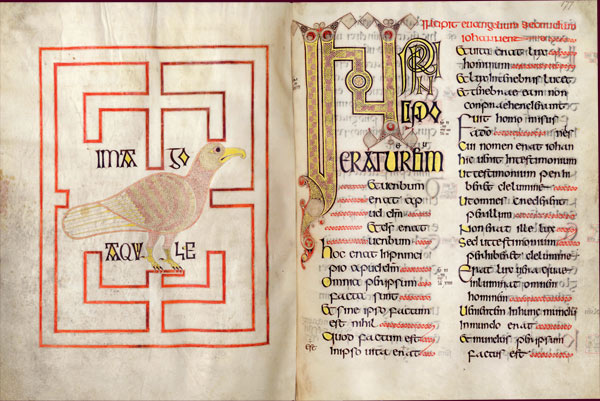 IMA GO
AQVI LE
IN PRIN
CIPIO
ERAT UERBUM
Et uerbum
erat apu
d dm
Et ds erat
uerbum
hoc erat in princi
pio apud dm
Omnia per ipsum
facta sunt
Et sine ipso factum
est nihil
Quod factum est
in ipso uita erat
Incipit euangelium secundum
iohannen
Et uita erat lux
hominum
Et lux in tenebris lucet
Et tenebrae eam non
conpraehenderunt
Fuit homo misus
nes
Cui nomen erat iohan
hic uenit in testimonium
Ut testimonium perhi
beret de lumine
Ut omnes crederent
per illum
Non erat ille lux
Sed ut testimonium
perhiberet de lumine
Erat lux uera quae
inluminat omnem
hominem
Uenientem in hunc mundum
In mundo erat
Et mundus per ipsum
factus est